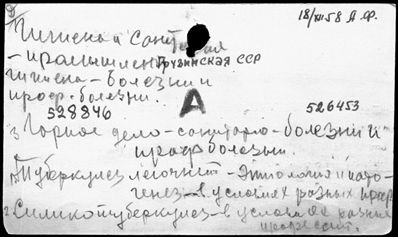 18/XII 58 Д.Ф.
Гигиена и Санитария
- промышлен Грузинская ССР
гигиена - болезни и
проф. болезни.
А
528846
526453
3 Горное дело - санитарно - болезни и
проф болезни.
Туберкулез легочный - этиология и пато-
генез - в условиях разных проф
2 Силикотуберкулез - в условиях разных
професс.